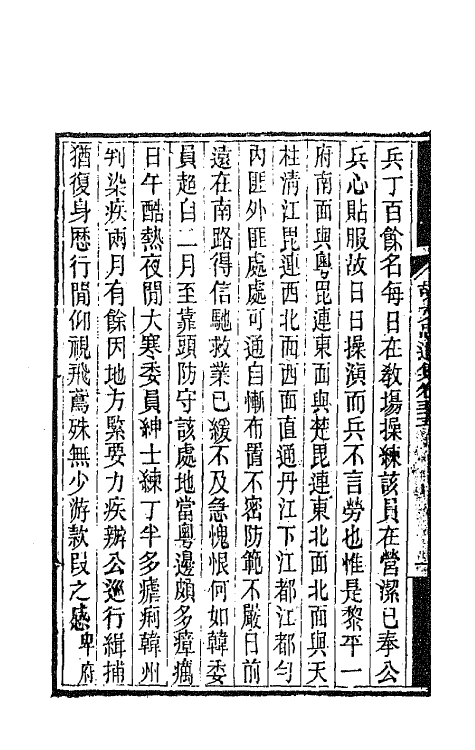 兵丁百餘名每日在教場操練該員在營潔已奉公
兵心貼服故日日操演而兵不言勞也惟是黎平一
府南面與粵毘連東面與楚毘連東北面北面與天
柱清江毘連西北面西面直通丹江下江都江都勻
內匪外匪處處可通自慚布置不密防範不嚴日前
遠在南路得信馳救業已緩不及急愧恨何如韓委
員超自二月至靠頭防守該處地當粵邊頗多瘴癘
日午酷熱夜閒大寒委員紳士練丁半多瘧痢韓州
判染疾兩月有餘因地方緊要力疾辦公巡行緝捕
猶復身歷行閒仰視飛鳶殊無少游款段之感卑府